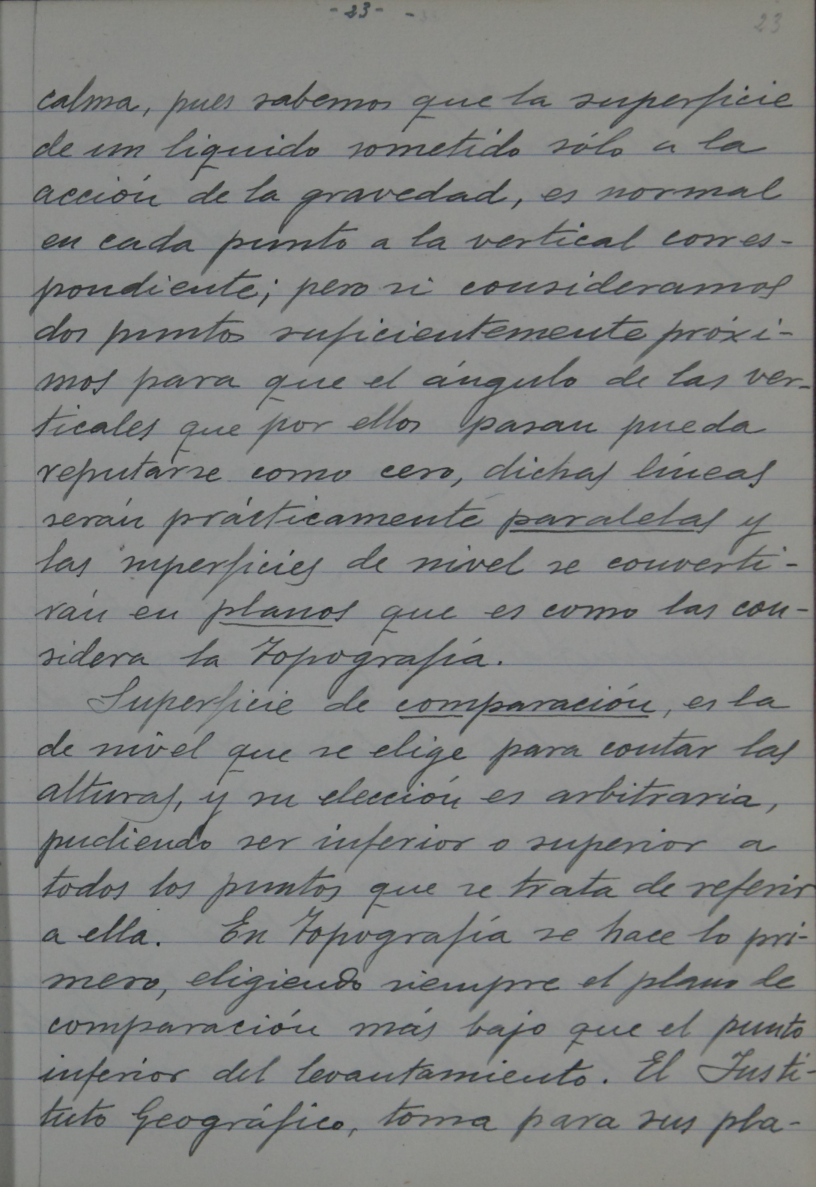 -23-
23
calma, pues sabemos que la superficie
de un liquido sometido sólo a la
acción de la gravedad, es normal
en cada punto a la vertical corres-
pondiente; pero si consideramos
dos puntos suficientemente próxi-
mos para que el ángulo de las ver-
ticales que por ellos pasan pueda
reputarse como cero, dichas líneas
serán prácticamente paralelas y
las superficies de nivel se converti-
rán en planos que es como las con-
sidera la Topografía.
Superficie de comparación, es la
de nivel que se elige para contar las
alturas, y su elección es arbitraria,
pudiendo ser inferior o superior a
todos los puntos que se trata de referir
a ella. En Topografía se hace lo pri-
mero, eligiendo siempre el plano de
comparación más bajo que el punto
inferior del levantamiento. El Insti-
tuto Geográfico, toma para sus pla-